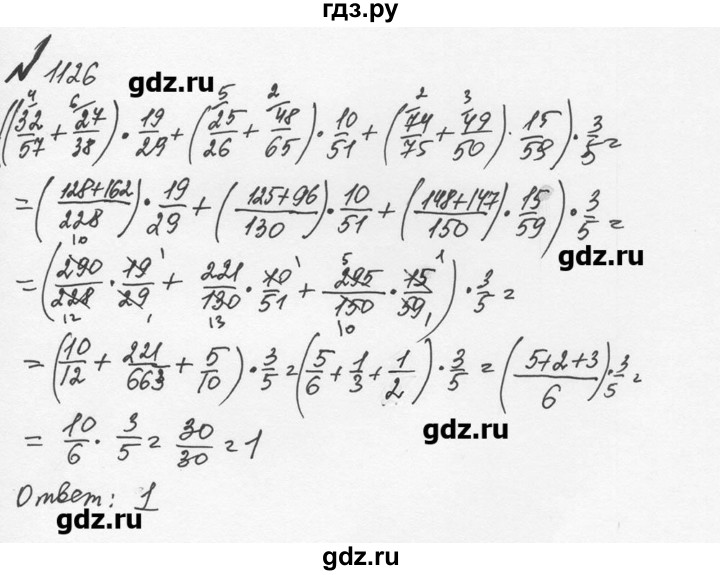 гдз.ру
№ 1126
gdz.ru
((32/57 ⁴ + 27/38 ⁶) · 19/29 + (25/26 ⁵ + 48/65 ²) · 10/51 + (74/75 ² + 49/50 ³) · 15/59) · 3/5 =
= ((128+162)/228) · 19/29 + ((125+96)/130) · 10/51 + ((148+147)/150) · 15/59) · 3/5 =
gdz.ru
= (290/228 · 19/29 + 221/130 · 10/51 + 295/150 · 15/59) · 3/5 =
10 1 1 5 1
12 1 13 10 1
= (10/12 + 221/663 + 5/10) · 3/5 = (5/6 + 1/3 + 1/2) · 3/5 = ((5+2+3)/6) · 3/5 =
= 10/6 · 3/5 = 30/30 = 1
gdz.ru
Ответ: 1
gdz.ru
gdz.ru